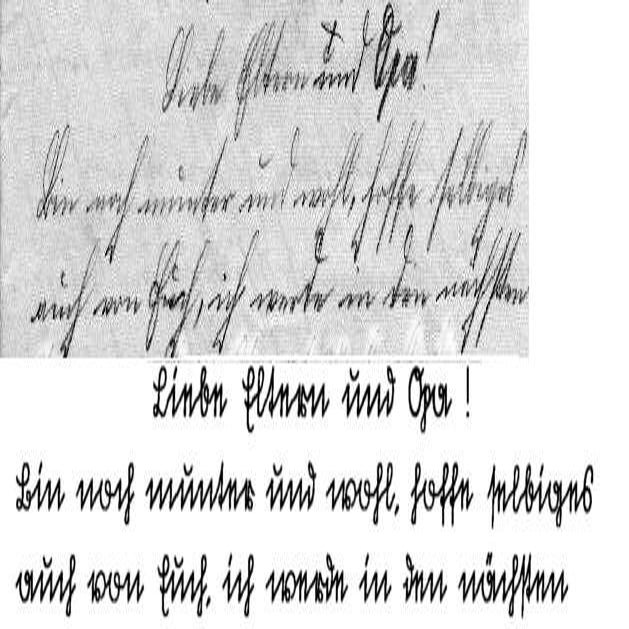 Liebe Eltern und Opa!
Bin noch munter und wohl, hoffe selbiges
auch von Euch, ich werde in den nächsten
Liebe Eltern und Opa !
Bin noch munter und wohl, hoffe selbiges
auch von Euch, ich werde in den nächsten